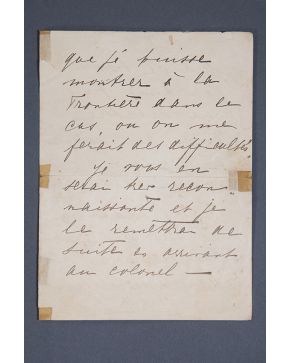 que je puisse
montrer à la
frontière dans le
cas, ou on me
ferait des difficultés
Je vous en
serai tres recon-
naissante et je
le remettrai de
suite en arrivant
au colonel —